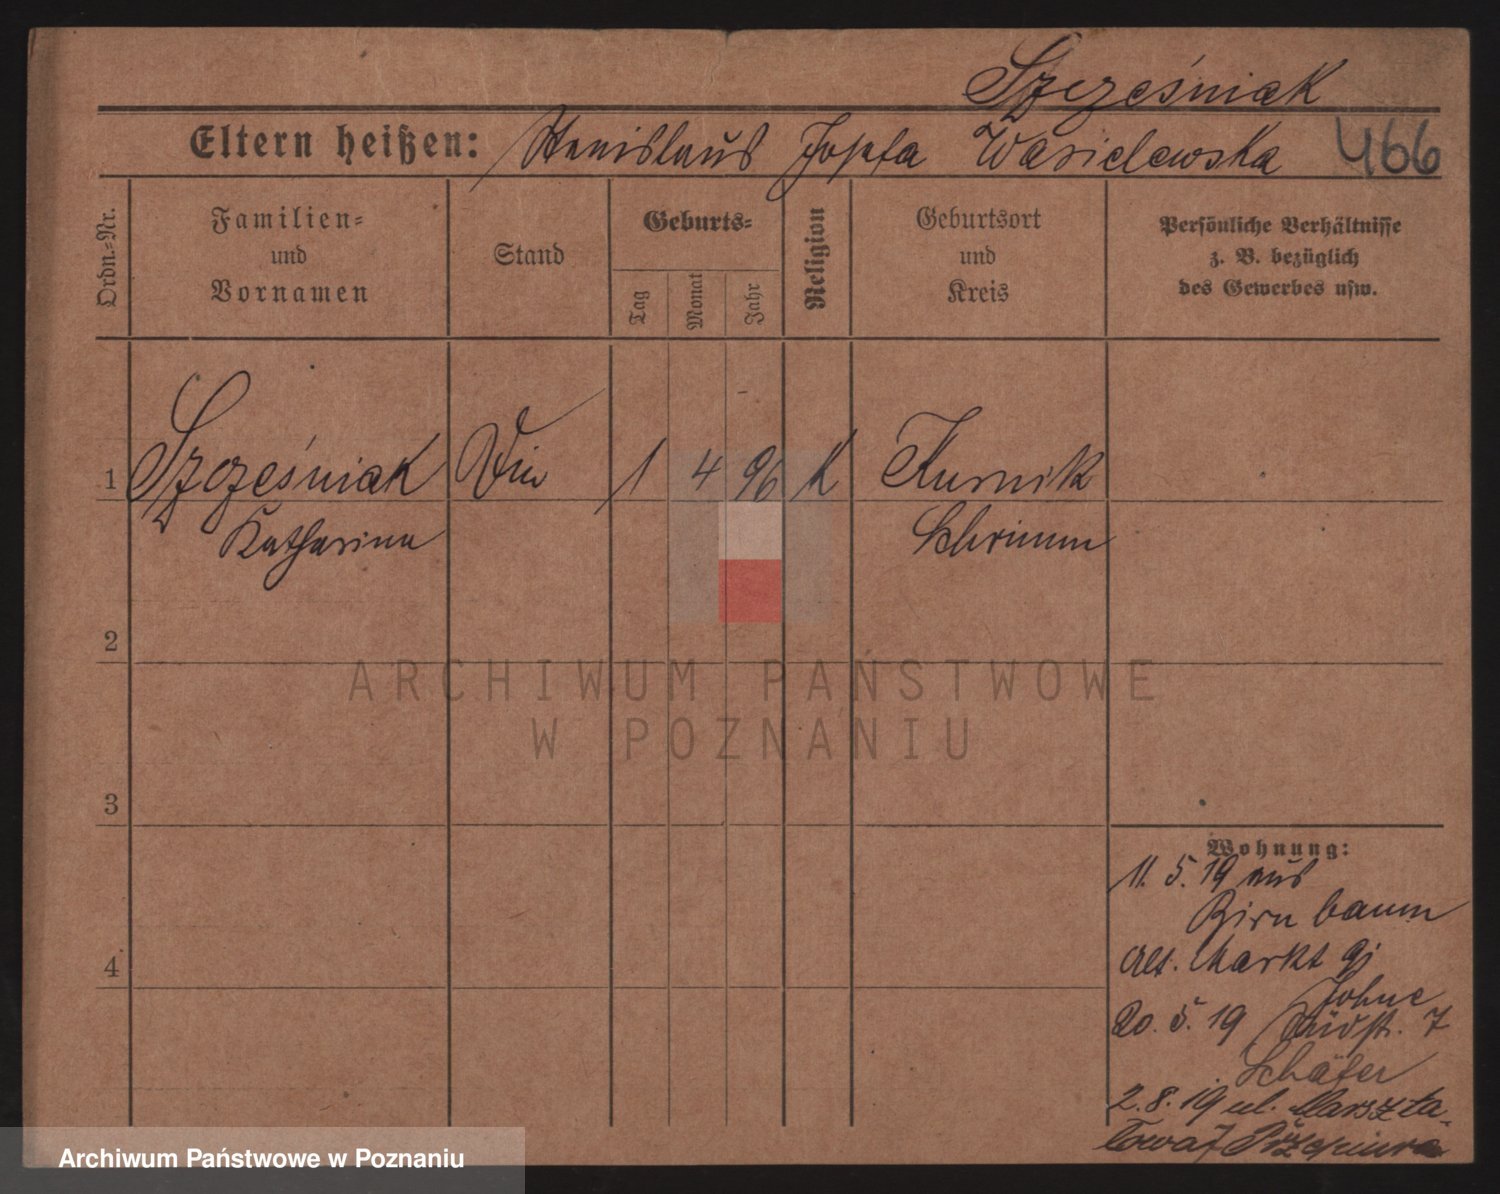 Szcześniak
Eltern heißen: Stanislaus Josefa Wasielewska 466
Ordn.-Nr.
Familien-
und
Vornamen
Stand
Geburts-
Tag
Monat
Jahr
Religion
Geburtsort
und
Kreis
Persönliche Verhältnisse
z. B. bezüglich
des Gewerbes usw.
1 Szcześniak 1 4 96 K Kurnik
Katharina Schrimm
2
3
4
Wohnung:
11. 5. 19 aus
Birnbaum
Alt. Markt
20. 5. 19 Südstr. 7
Schäfer
2. 8. 19 ul. Marszta-
ARCHIWUM PAŃSTWOWE
W POZNANIU
Archiwum Państwowe w Poznaniu